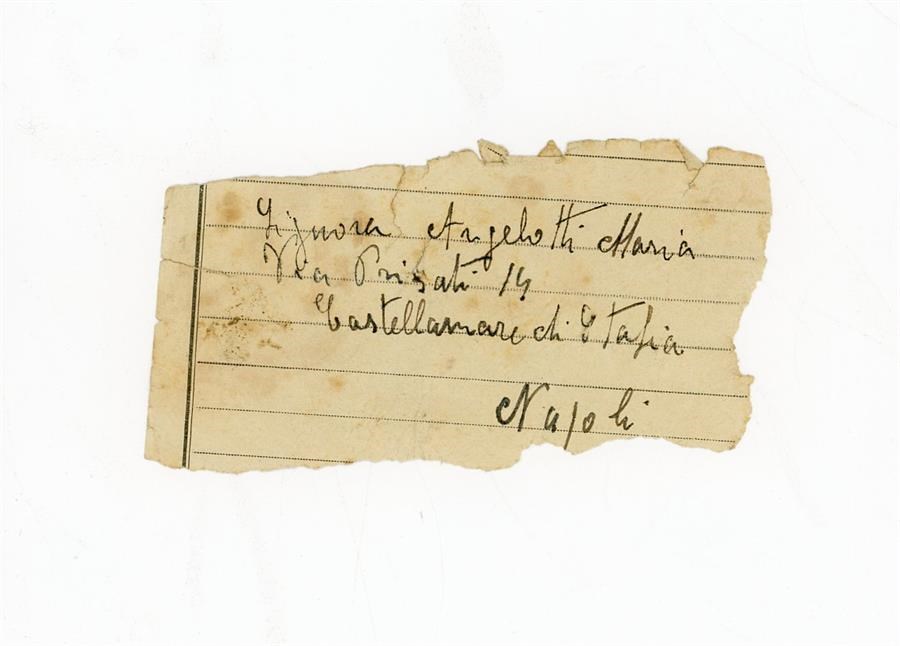 Signora Angelotti Maria
Via Privati 14
Castellamare di Stabia
Napoli